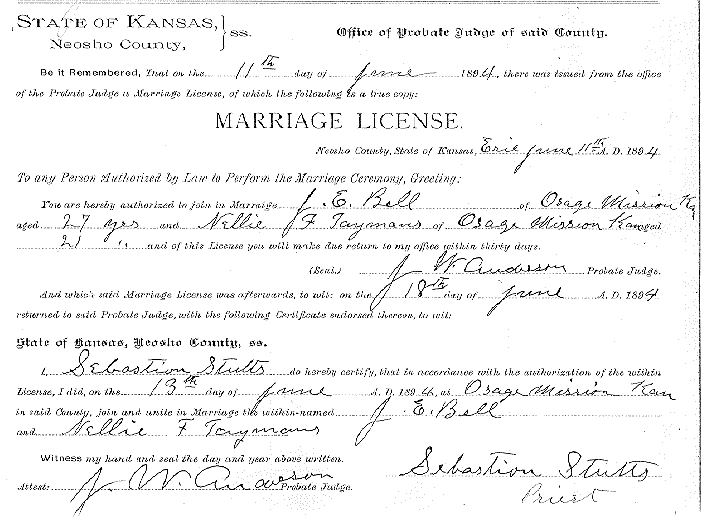 STATE OF KANSAS, } ss. Office of Probate Judge of said County.
Neosho County,
Be it Remembered, That on the 11th day of June 1894, there was issued from the office
of the Probate Judge a Marriage License, of which the following is a true copy:
MARRIAGE LICENSE.
Neosho County, State of Kansas, Erie June 11th A. D. 1894
To any Person Authorized by Law to Perform the Marriage Ceremony, Greeting:
You are hereby authorized to join in Marraige J. E. Bell of Osage Mission Ka
aged 27 yrs and Nellie F Taymans of Osage Mission Kan aged
21 " and of this License you will make due return to my office within thirty days.
(Seal.) J W. Anderson Probate Judge.
And which said Marriage License was afterwards, to wit: on the 18th day of June A. D. 1894
returned to said Probate Judge, with the following Certificate endorsed thereon, to wit:
State of Kansas, Neosho County, ss.
I, Sebastion Stutts do hereby certify, that in accordance with the authorization of the within
License, I did, on the 13th day of June A. D. 1894, at Osage Mission Kan
in said County, join and unite in Marriage the within-named J. E. Bell
and Nellie F Taymans
Witness my hand and seal the day and year above written.
Sebastion Stutts
Attest: J. W. Anderson Probate Judge.
Priest